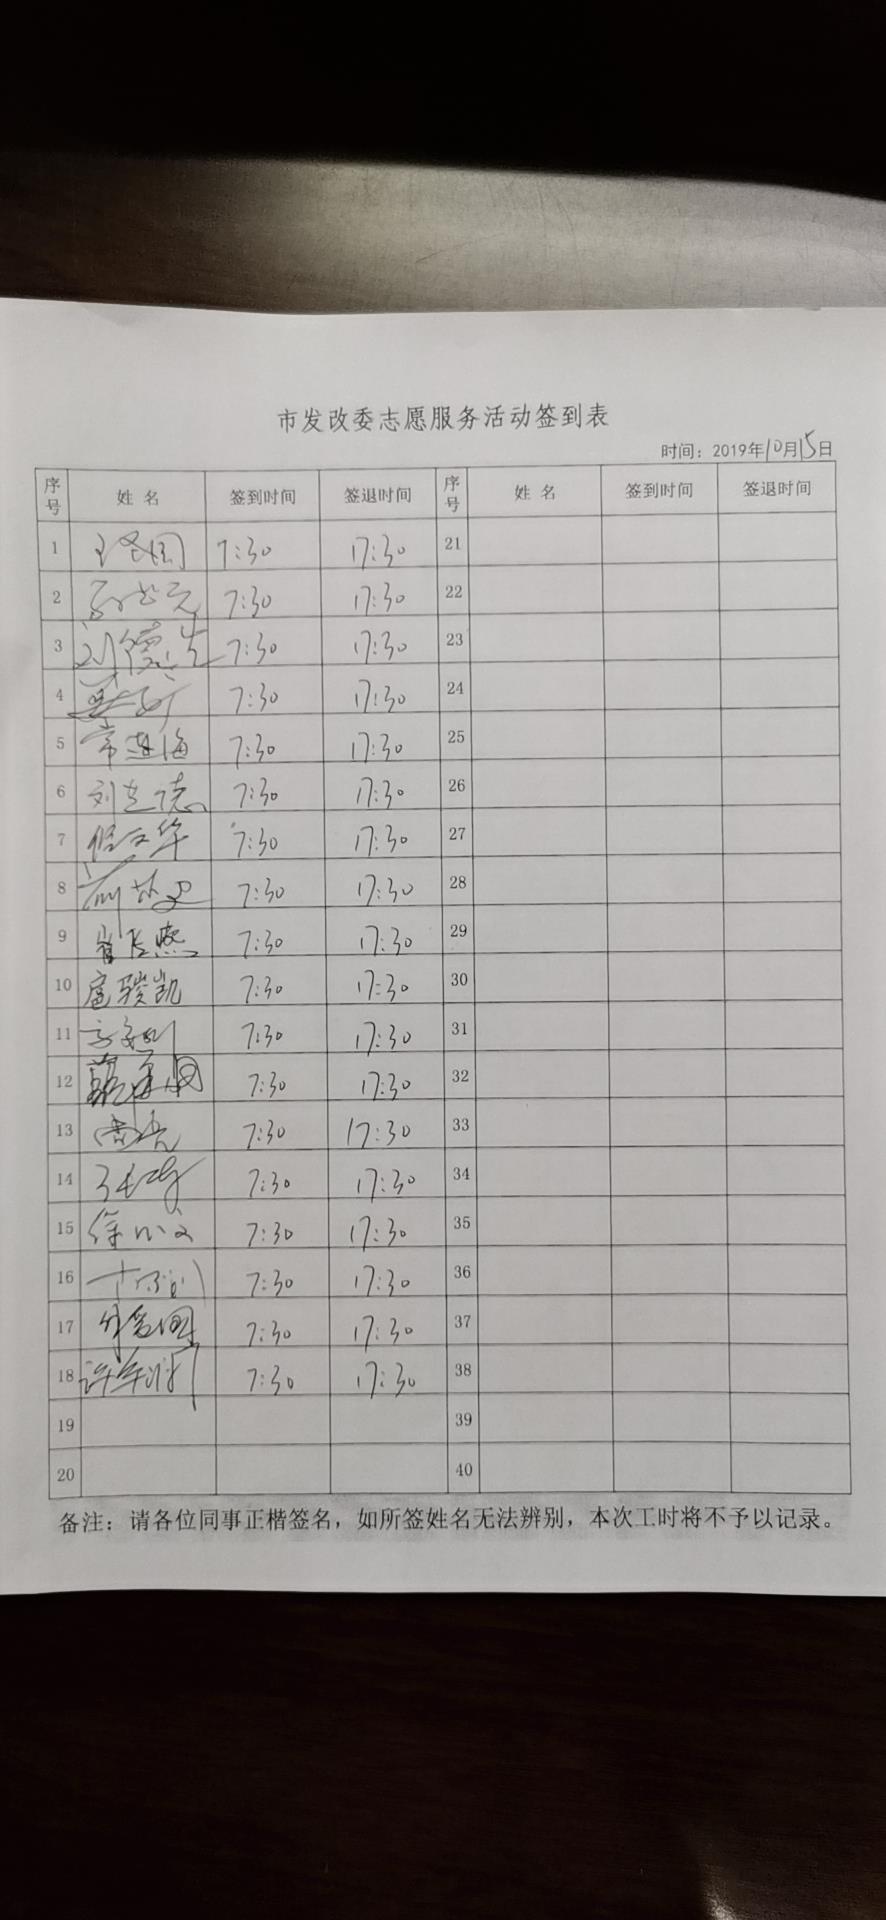 市发改委志愿服务活动签到表
时间：2019年10月15日
序号 姓名 签到时间 签退时间 序号 姓名 签到时间 签退时间
1 7:30 17:30 21
2 7:30 17:30 22
3 刘德 7:30 17:30 23
4 7:30 17:30 24
5 常 海 7:30 17:30 25
6 刘 德 7:30 17:30 26
7 文华 7:30 17:30 27
8 7:30 17:30 28
9 7:30 17:30 29
10 扈骏凯 7:30 17:30 30
11 7:30 17:30 31
12 7:30 17:30 32
13 7:30 17:30 33
14 7:30 17:30 34
15 徐 文 7:30 17:30 35
16 7:30 17:30 36
17 7:30 17:30 37
18 许 7:30 17:30 38
19 39
20 40
备注：请各位同事正楷签名，如所签姓名无法辨别，本次工时将不予以记录。